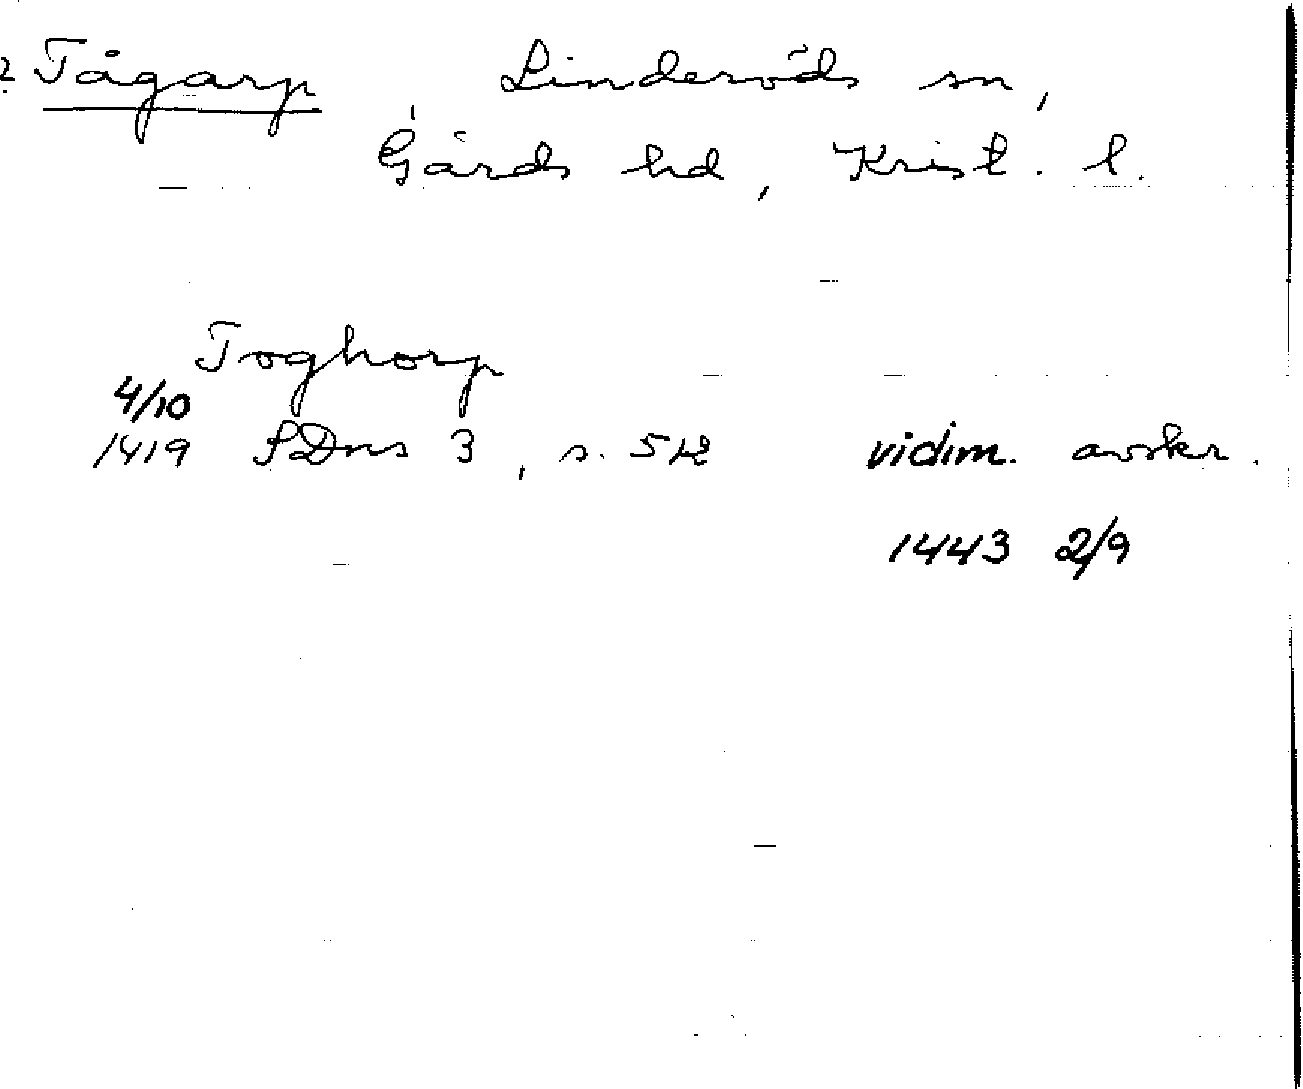 2 Tågarp, Linderöds sn,
Gärds hd, Krist. l.
Toghorp
4/10
1419 SDns 3, s. 512 vidim. avskr.
1443 2/9